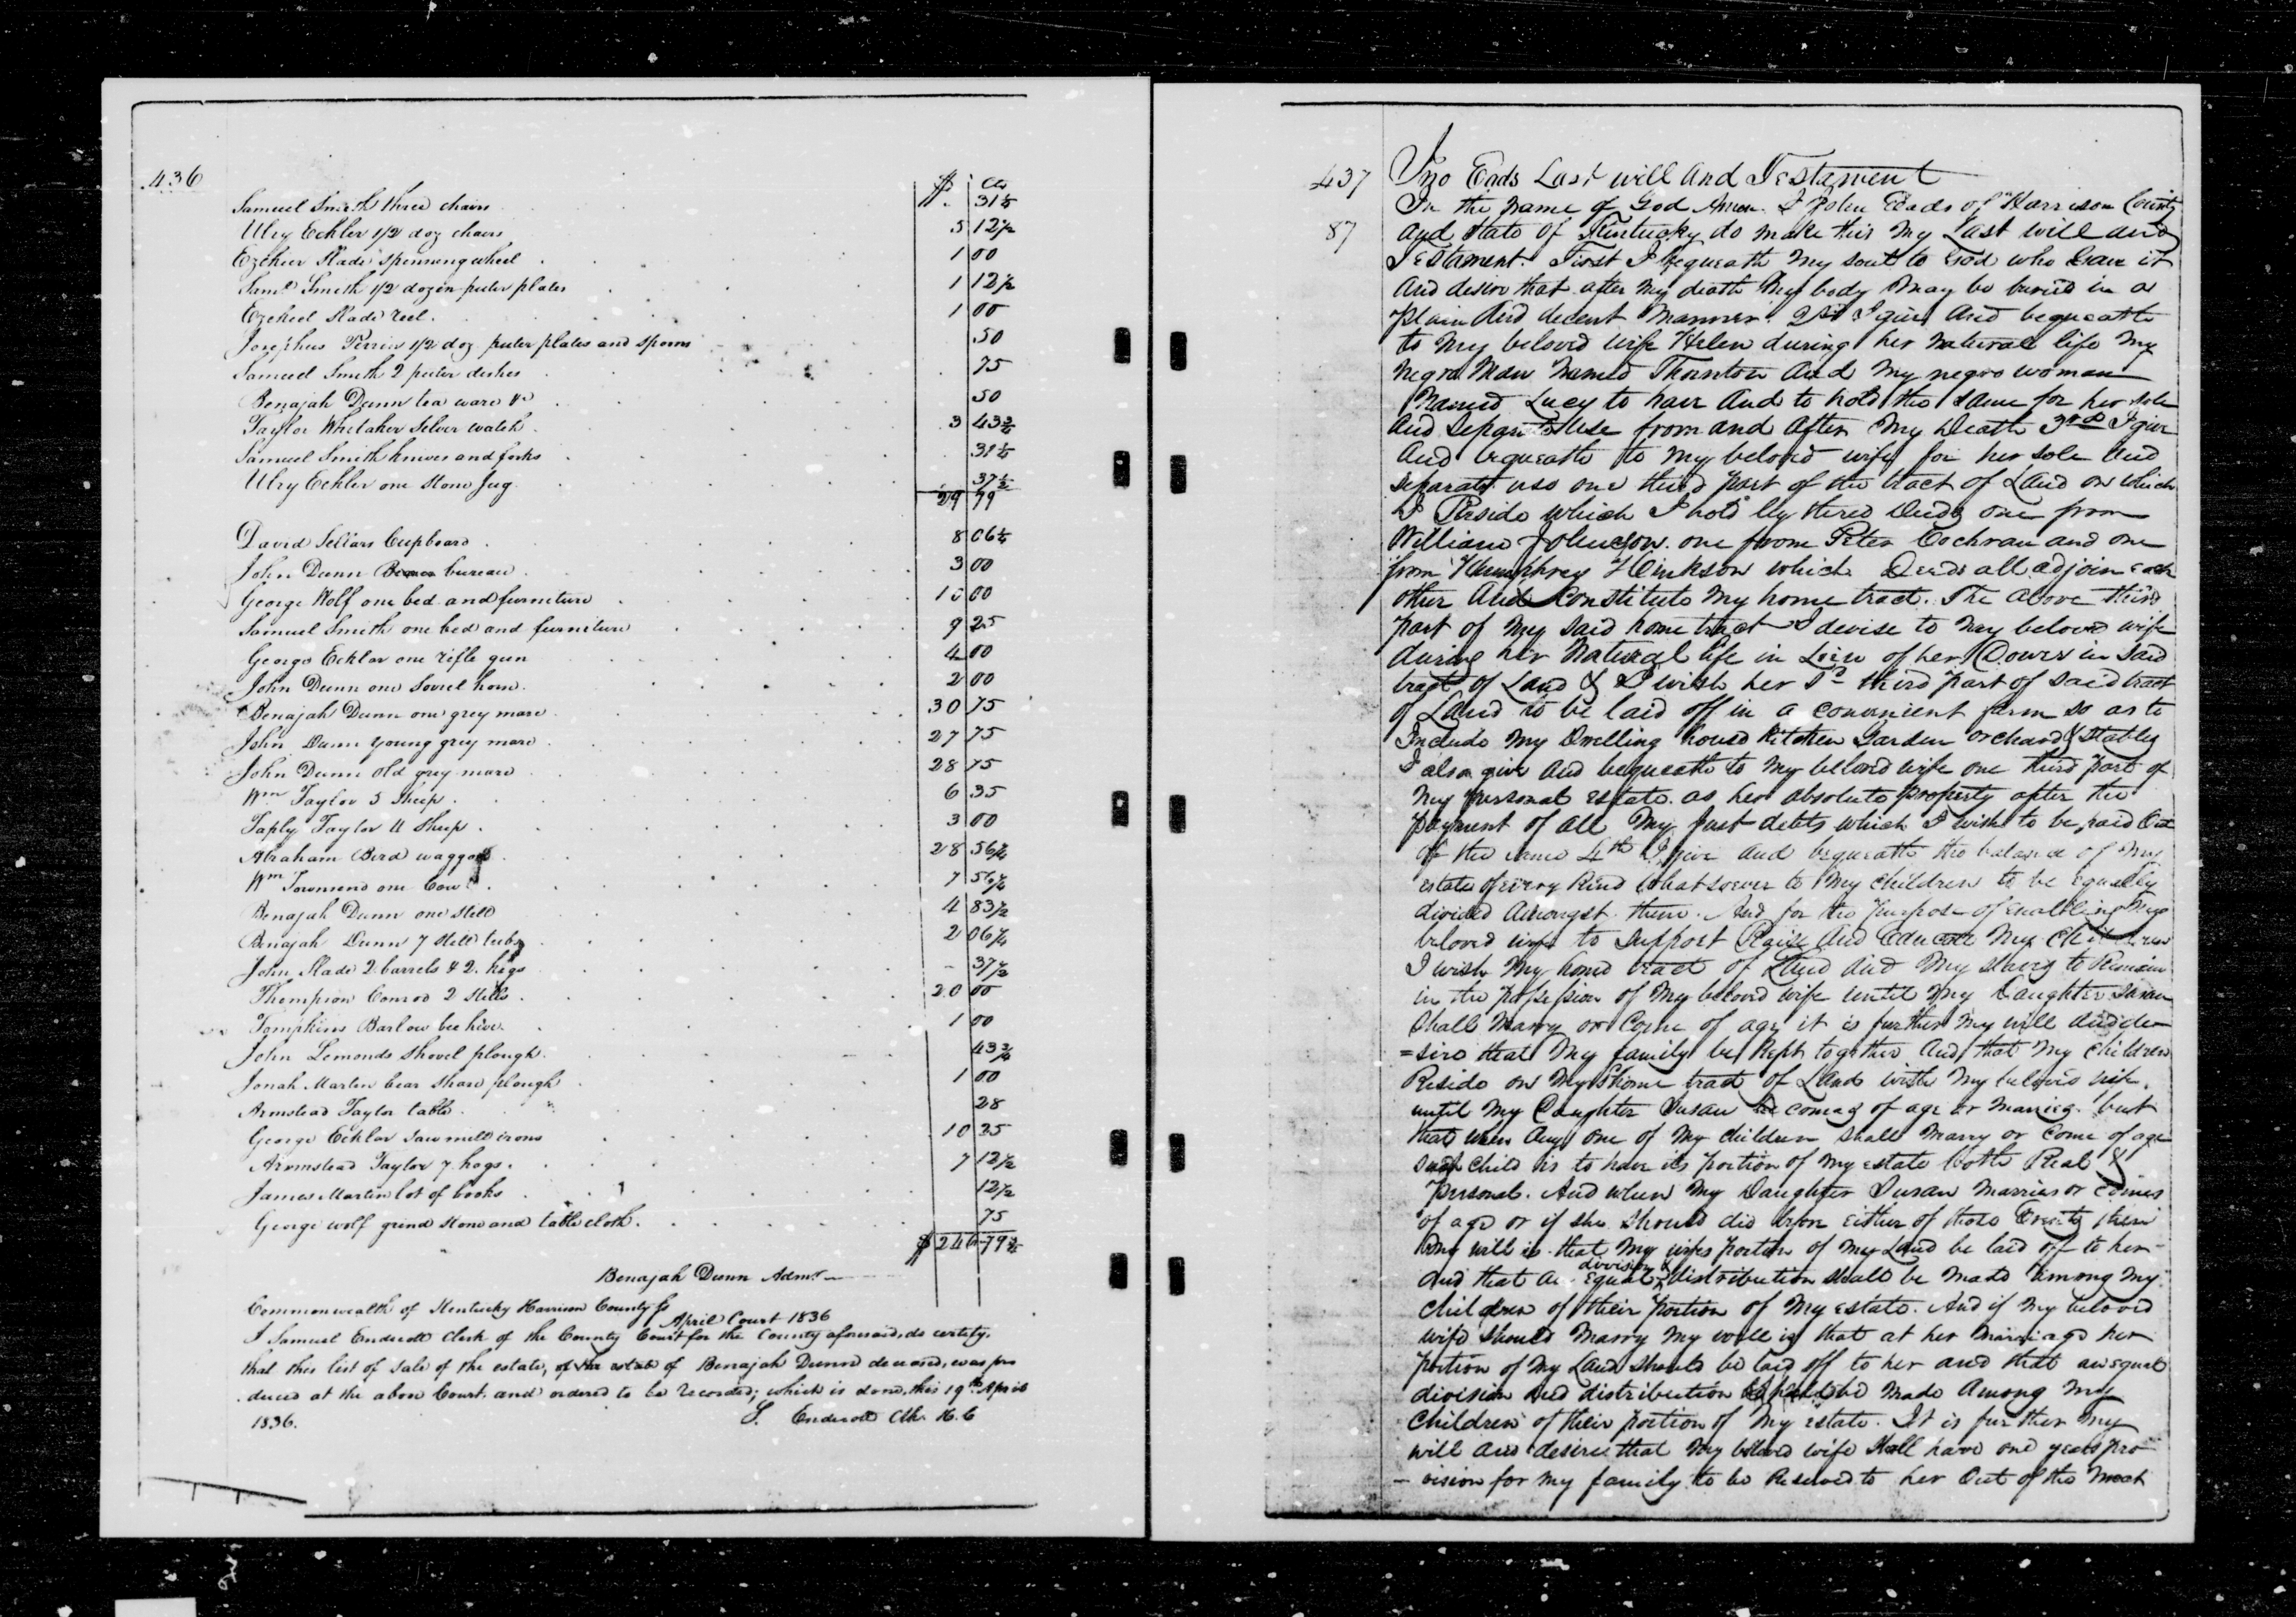 436
$ Cts
Samuel Smith three chairs . 31¼
Ulry Eckler 1/2 doz chairs 5 12½
Ezekier Slade spinning wheel 1 00
Saml Smith 1/2 dozen puter plates 1 12½
Ezekiel Slade reel. 1 00
Josephus Perrin 1/2 doz puter plates and spoons .50
Samuel Smith 2 puter dishes 75
Benajah Dunn tea ware &c 50
Taylor Whitaker Silver watch. 3 43¾
Samuel Smith knives and forks 31¼
Ulry Eckler one stone Jug 37½
29 79
David Sellars Cupboard 8 06¼
John Dunn bureau 3 00
George Wolf one bed and furniture 10 00
Samuel Smith one bed and furniture 9 25
George Eckler one rifle gun 4 00
John Dunn one Sorrel horse. 2 00
Benajah Dunn one grey mare 30 75
John Dunn young grey mare 27 75
John Dunn old grey mare 28 75
Wm Taylor 5 Sheep 6 35
Taply Taylor 4 Sheep 3 00
Abraham Bird waggon 28 56¼
Wm Townsend one Cow 7 56¼
Benajah Dunn one still 4 83½
Benajah Dunn 7 still tubs 2 06¼
John Slade 2 barrels & 2 kegs - 37½
Thompson Conrod 2 Stills 20 00
Tompkins Barlow bee hive 1 00
John Lemonds shovel plough. 43¾
Jonah Martin bear share plough 1 00
Armstead Taylor table 28
George Eckler Saw mill irons 10 25
Armstead Taylor 7 hogs. 7 12½
James Martin lot of books 12½
George wolf grind stone and table cloth. 75
$ 246 79¾
Benajah Dunn Admr
Commonwealth of Kentucky Harrison County Ss
April Court 1836
I Samuel Endicott Clerk of the County Court for the County aforesaid, do certify,
that this list of sale of the estate, of the estate of Benajah Dunn deceased, was pro
duced at the above Court, and ordered to be recorded; which is done, this 19th April
1836. S. Endicott Clk H. C
437 Jno Eads Last will And Testament
In the name of God Amen. I John Eads of Harrison County
87 and State of Kentucky do make this my Last will and
Testament. First I bequeath my soul to God who Gave it
And desire that after my death My body may be buried in a
plain And decent Manner. I give And bequeath
to my beloved wife Helen during her Natural life My
Negro Man Named Thornton And My negro woman
Named Lucy to have And to hold the same for her sole
And Seperate Use from and after My Death 3rd I give
And bequeath to my beloved wife for her sole And
seperate use one third part of the tract of Land on which
I Reside which I hold by three Deeds one from
William Johnson one from Peter Cochran and one
from Humphrey Hinkson which Deeds all adjoin each
other And Constitute My home tract. The above third
part of my said home tract I devise to my beloved wife
during her Natural life in Lieu of her Dower in said
tract of Land & I wish her Sd third part of said tract
of Land to be laid off in a convenient form so as to
Include my Dwelling house kitchen Garden orchard & Stables
I also give And bequeath to My beloved wife one third part of
my personal estate as her absolute property after the
payment of all My Just debts which I wish to be paid Out
of the same 4th I give and bequeath the balance of My
estate of every Kind Whatsoever to My children to be equally
divided Amongst them. And for the purpose of enabling My
beloved wife to Support Raise And Educate My Children
I wish My home tract of Land And My slaves to Remain
in the possession of My beloved wife until My Daughter Susan
Shall Marry or Come of age it is further My will and de
=sire that My family be Kept together And that My Children
Reside on My home tract of Land with My beloved wife
until My Daughter Susan comes of age or marries but
that when Any one of My children shall Marry or Come of age
such child is to have its portion of my estate both Real &
personal. And when My Daughter Susan marries or comes
of age or if she should die before either of those Events then
my will is that My wifes portion of My Land be laid off to her
division &
And that an equal distribution shall be made among my
children of their portion of My estate. And if my beloved
wife should Marry My will is that at her Marriage her
portion of My Land should be laid off to her and that an equal
division And distribution be made Among My
Children of their portion of My estate. It is further My
will and desire that My beloved wife Shall have one years pro
- vision for my family to be Reserved to her Out of the Meat